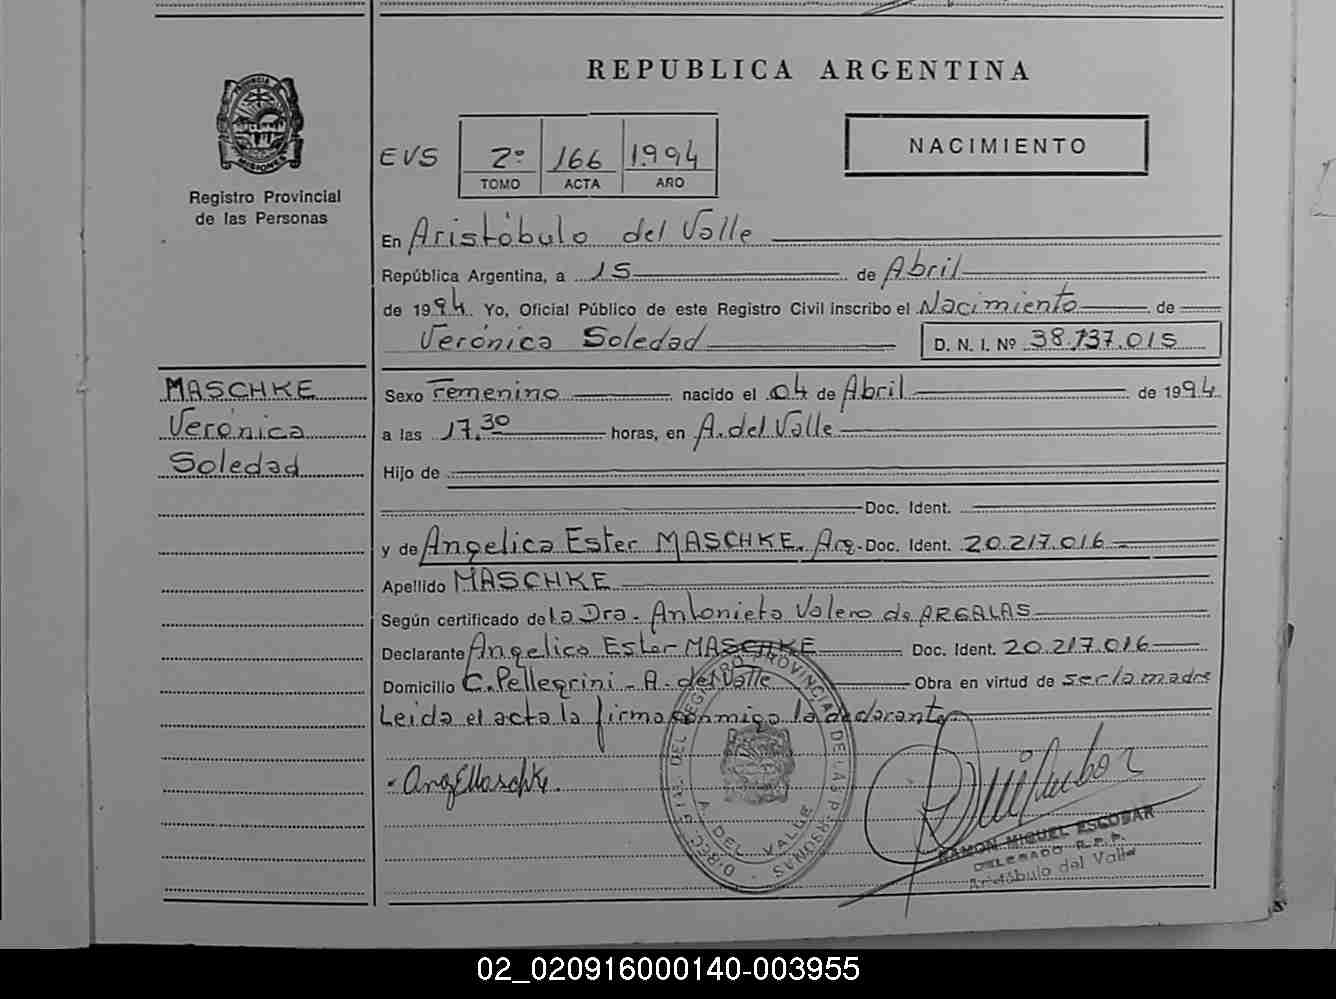 REPUBLICA ARGENTINA
PROVINCIA
MISIONES
Registro Provincial
de las Personas
EVS 2º 166 1994
TOMO ACTA AÑO
NACIMIENTO
En Aristóbulo del Valle
República Argentina, a 15 de Abril
de 1994. Yo, Oficial Público de este Registro Civil inscribo el Nacimiento de
Verónica Soledad D. N. I. Nº 38.137.015
MASCHKE
Verónica
Soledad
Sexo Femenino nacido el 04 de Abril de 1994
a las 17,30 horas, en A. del Valle
Hijo de
Doc. Ident.
y de Angelica Ester MASCHKE. Arg. Doc. Ident. 20.217.016
Apellido MASCHKE
Según certificado de la Dra. Antonieta Valero de ARGALAS
Declarante Angelica Ester MASCHKE Doc. Ident. 20.217.016
Domicilio C. Pellegrini - A. del Valle Obra en virtud de ser la madre
Leida el acta la firma conmigo la declarante
DIREC. GRAL. DEL REGISTRO PROVINCIAL DE LAS PERSONAS
A. DEL VALLE
AngEMaschke.
RAMON MIGUEL ESCOBAR
DELEGADO R.P.P.
Aristóbulo del Valle
02_020916000140-003955